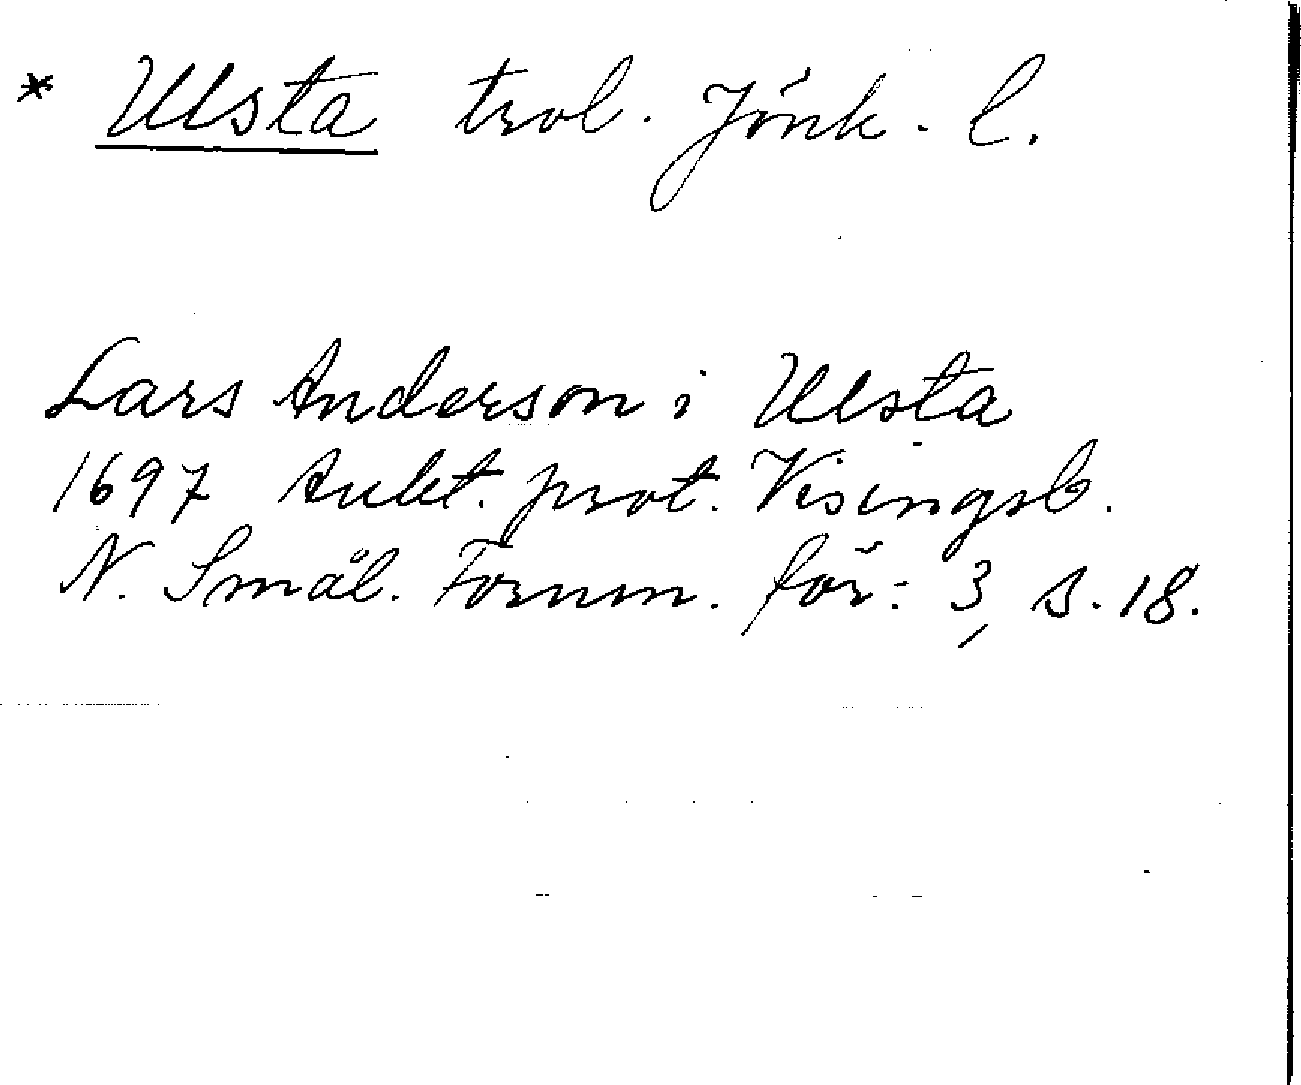 * Ulsta trol. Jönk. l.
Lars Anderson i Ulsta
1697 Aukt. prot. Visingsb.
N. Smål. Fornm. för: 3, s. 18.